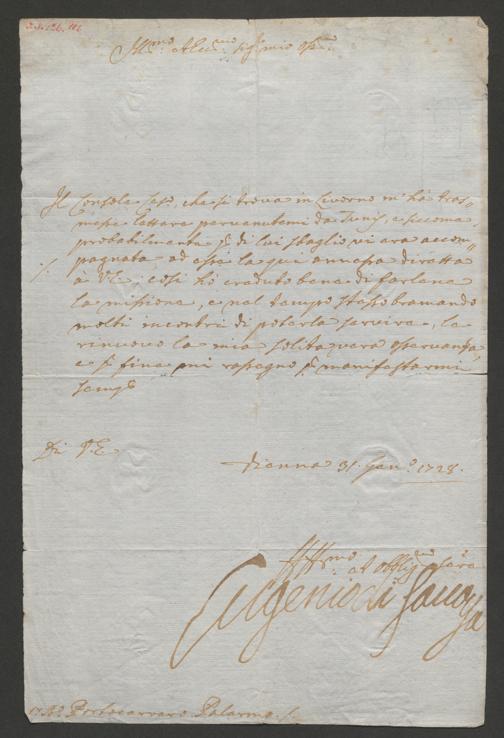 Ill.mo et Ecc.mo Sig.r mio oss.mo
Il Console che si trova in Livorno m'hà tras=
messe lettere pervenutemi da Tunis, e siccome
probabilmente p. di lui sbaglio, vi era accom=
pagnata ad esse la qui annessa diretta
à V.E. così hò creduto bene di farlene
la missione, e nel tempo stesso bramando
molti incontri di poterla servire, le
rinuovo la mia solita vera osservanza,
e p. fine mi rassegno p. manifestarmi
semp.e
Di V.E.
Vienna 31. Gen.o 1728.
Aff.mo et obblig.mo
Eugenio di Savoya
Portocarrero Palermo